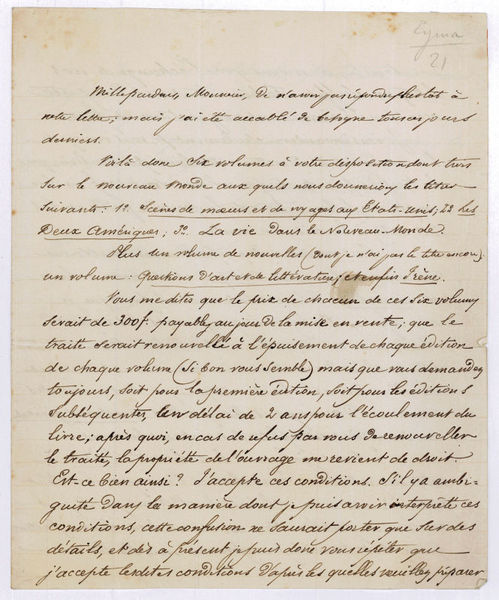 Eyma
21
Mille pardons, Monsieur, de n'avoir pas répondu plustot à
votre lettre; mais j'ai été accablé de besogne tous ces jours
derniers.
Voilà donc six volumes à votre disposition dont trois
sur le nouveau monde aux quels nous donnerions les titres
suivants: 1º Scènes de mœurs et de voyages aux Etats-Unis; 2º Les
Deux Amériques; 3º La vie dans le Nouveau-Monde.
Plus un volume de nouvelles (dont je n'ai pas le titre encore).
un volume: Questions d'art et de littérature; et enfin Irène.
Vous me dites que le prix de chacun de ces six volumes
serait de 300f. payables au jour de la mise en vente; que le
traité serait renouvellé à l'épuisement de chaque édition
de chaque volume (si bon vous semble) mais que vous demandez
toujours, soit pour la première édition, soit pour les éditions
subséquentes, un délai de 2 ans pour l'écoulement du
livre; après quoi, en cas de refus par vous de renouveller
le traité, la propriété de l'ouvrage me revient de droit.
Est ce bien ainsi? J'accepte ces conditions. S'il y a ambi-
guité dans la manière dont je puis avoir interprété ces
conditions, cette confusion ne saurait porter que sur des
détails, et dès à présent je puis donc vous répéter que
j'accepte lesdites conditions d'après les quelles veuillez préparer